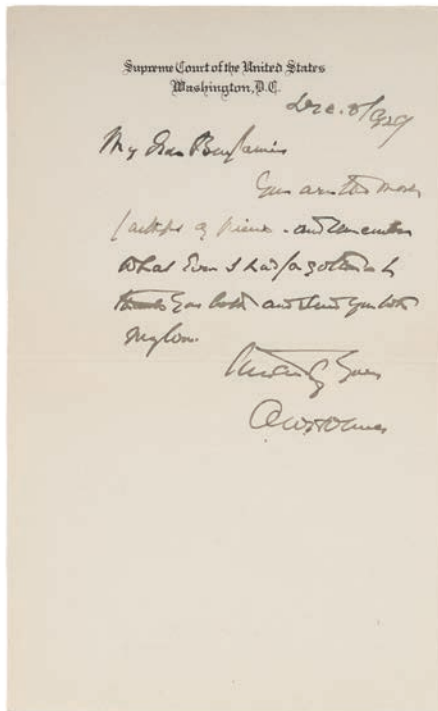 Supreme Court of the United States
Washington, D.C.
Dec. 8/1929
My dear Benjamin
You are the most
faithful of friends - and remember
what even I had forgotten. I
thank you both and send you both
my love.
Yours
OWHolmes